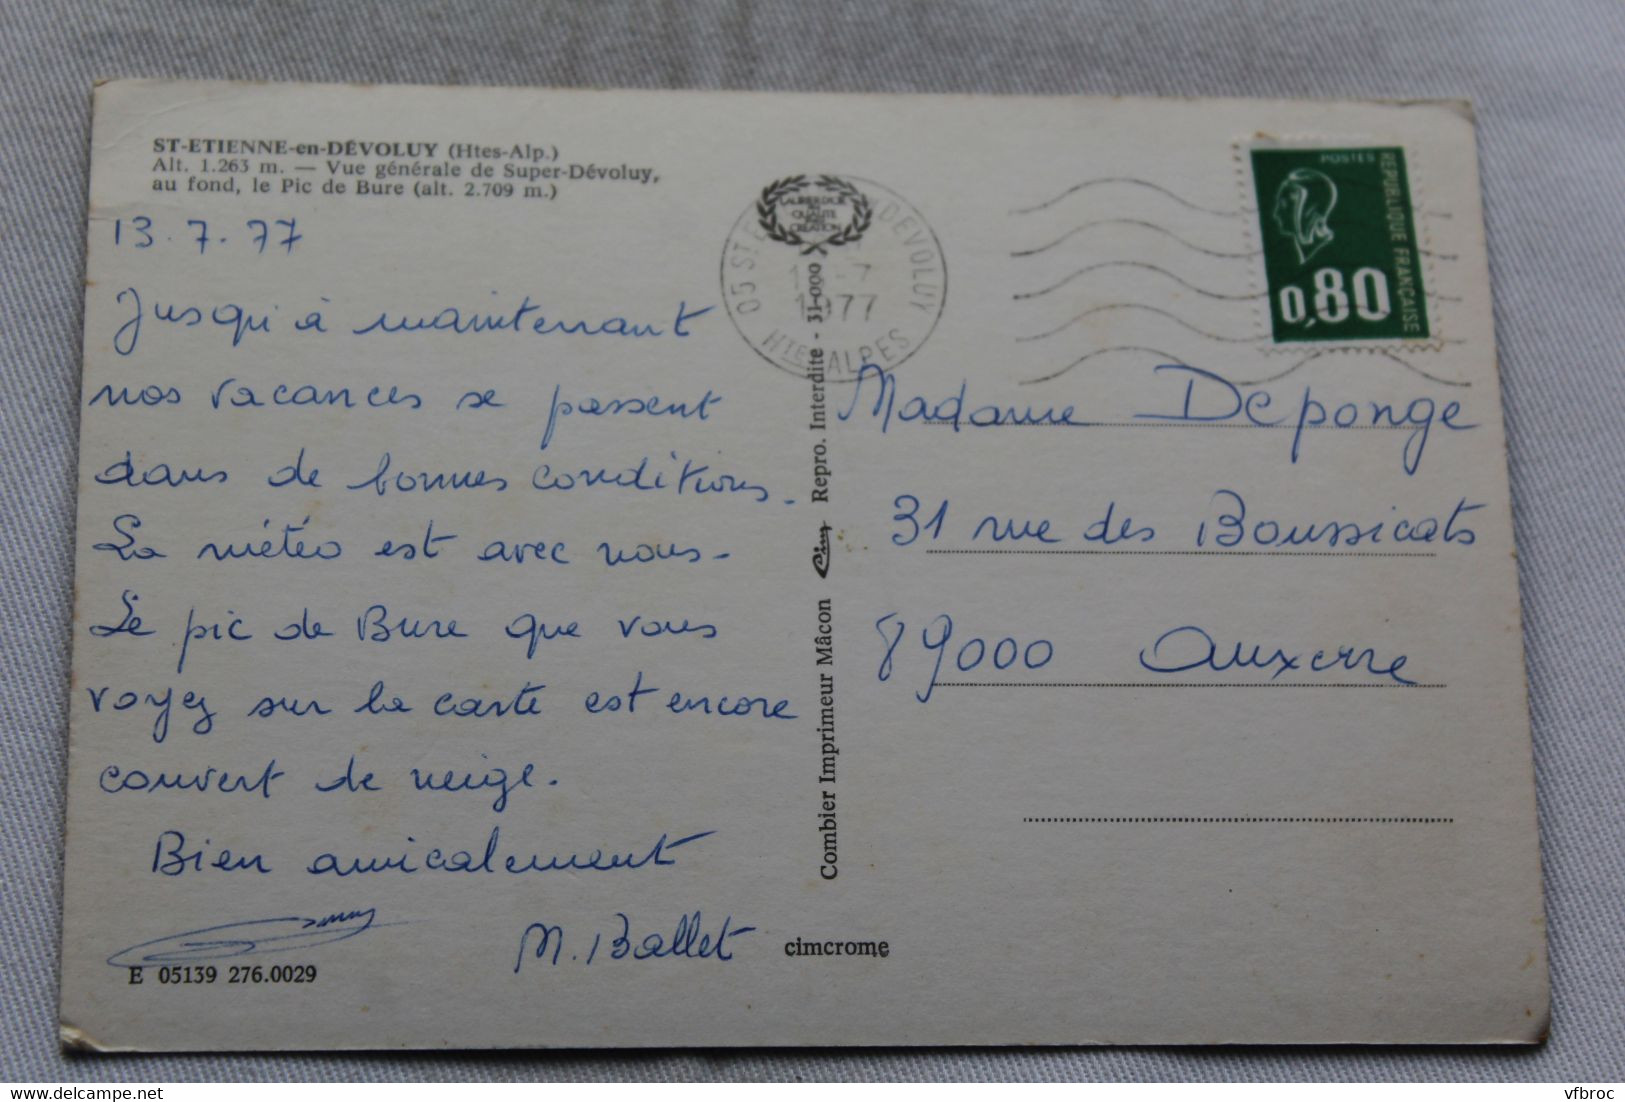 ST-ETIENNE-en-DÉVOLUY (Htes-Alp.)
Alt. 1.263 m. — Vue générale de Super-Dévoluy,
au fond, le Pic de Bure (alt. 2.709 m.)
13.7.77
Jusqu'à maintenant
nos vacances se passent
dans de bonnes conditions.
La météo est avec nous.
Le pic de Bure que vous
voyez sur la carte est encore
couvert de neige.
Bien amicalement
M. Ballet
E 05139 276.0029
cimcrome
Combier Imprimeur Mâcon Cim Repro. Interdite - 31-000
LAURIER D'OR
QUALITE
CREATION
05 ST E DEVOLUY
-7
1977
HTES ALPES
POSTES
REPUBLIQUE FRANÇAISE
0,80
Madame Deponge
31 rue des Boussicats
89000 Auxerre
http://www.delcampe.net
vfbroc